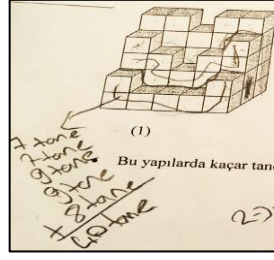 (1)
Bu yapılarda kaçar tane
7 tane
7 tane
9 tane
9 tane
8 tane
+
40 tane
2=)